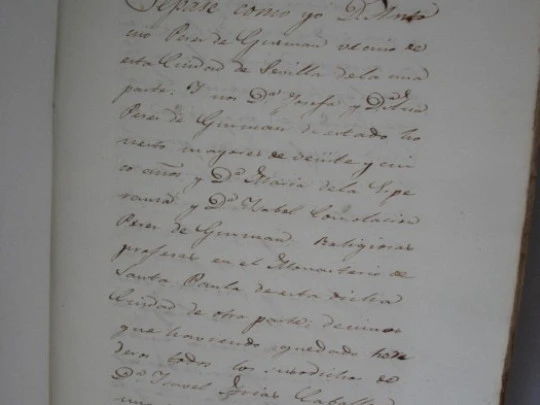 Sepase como yo Dn. Anto
nio Perez de Guzman vecino de
esta Ciudad de Sevilla de la una
parte: Y nos Da. Josefa y Da. Ana
Perez de Guzman de estado ho
nesto mayores de veinte y cin
co años y Da. Maria de la Espe
ranza y Da. Ysabel Consolacion
Perez de Guzman Religiosas
profesas en el Monasterio de
Santa Paula de esta dicha
Ciudad de otra parte; decimos
que haviendo quedado here
deros todos los susodichos de
Da. Ysavel Frias Caball